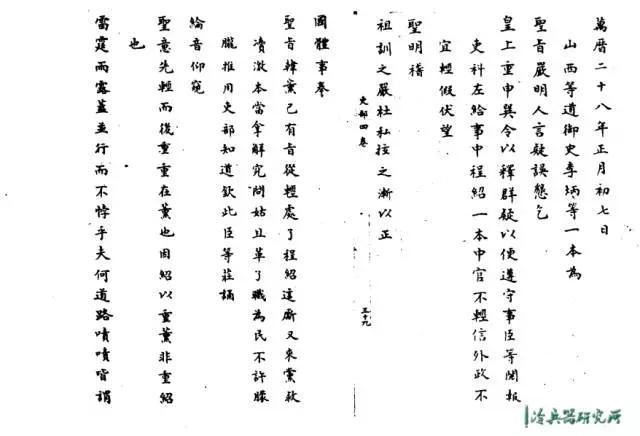 萬曆二十八年正月初七日
山西等道御史李炳等一本為
聖旨嚴明人言疑誤懇乞
皇上重申巽令以釋群疑以便遵守事臣等閱報
吏科左給事中程紹一本中官不輕信外政不
宜輕假伏望
聖明稽
祖訓之嚴杜私拉之漸以正
吏部四卷
三十九
國體事奉
聖旨韓薰已有旨從輕處了程紹這廝又來黨救
瀆激本當拿解究問姑且革了職為民不許朦
朧推用吏部知道欽此臣等莊誦
綸音仰窺
聖意先輕而後重重在薰也因紹以重薰非重紹
也
雷霆雨露蓋並行而不悖乎夫何道路嘖嘖皆謂
冷兵器研究所